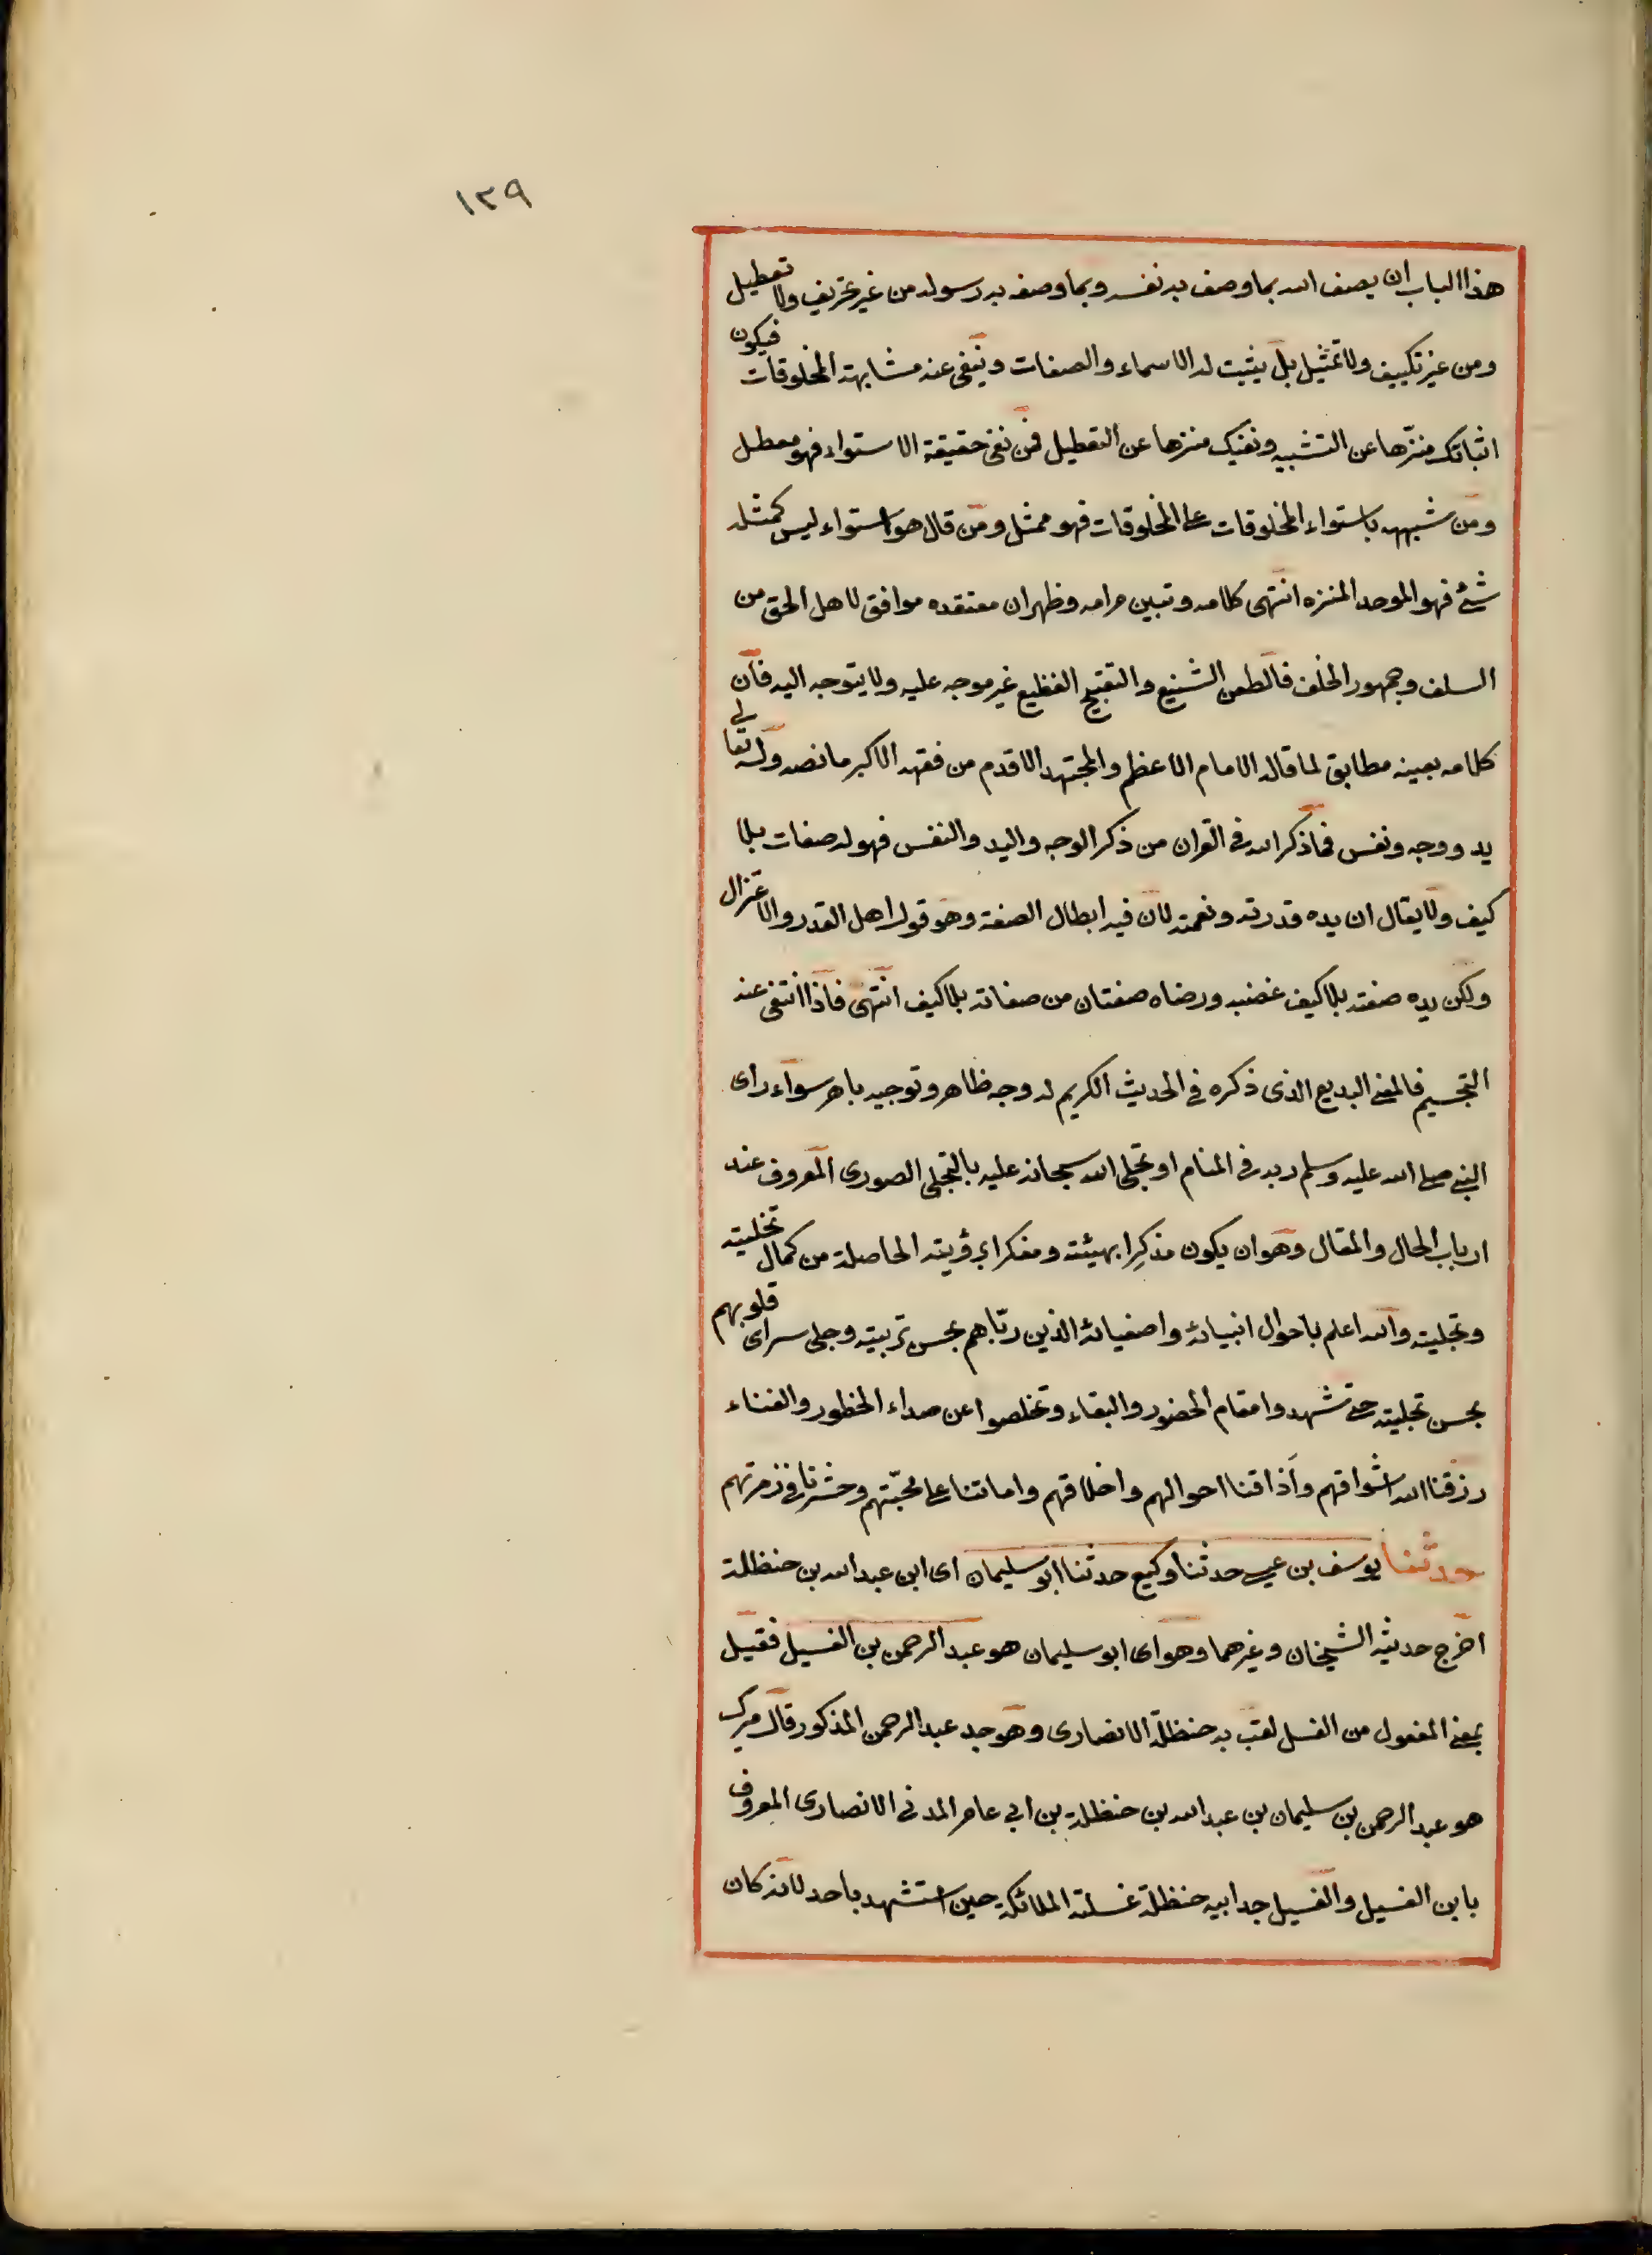 ١٢٩
هذا الباب ان يصف الله بما وصف به نفسه وبما وصفه به رسوله من غير تحريف ولا تعطيل
ومن غير تكييف ولا تمثيل بل يثبت له الاسماء والصفات وينفى عنه مشابهة المخلوقات فيكون
اثباتك منزّها عن التشبيه ونفيك منزها عن التعطيل فمن نفى حقيقة الاستواء فهو معطل
ومن شبهه باستواء المخلوقات على المخلوقات فهو ممثل ومن قال هو استواء ليس كمثله
شئ فهو الموحد المنزه انتهى كلامه وتبين مرامه وظهر ان معتقده موافق لاهل الحق من
السلف وجمهور الخلف فالطعن الشنيع والتقبيح الفظيع غير موجه عليه ولا يتوجه اليه فان
كلامه بعينه مطابق لما قاله الامام الاعظم والمجتهد الاقدم من فقهه الاكبر ما نصه وله تعالى
يد ووجه ونفس فما ذكر الله فى القران من ذكر الوجه واليد والنفس فهو له صفات بلا
كيف ولا يقال ان يده قدرته ونعمته لان فيه ابطال الصفة وهو قول اهل القدر والاعتزال
ولكن يده صفته بلا كيف غضبه ورضاه صفتان من صفاته بلا كيف انتهى فاذا انتفى عنه
التجسيم فالمعنى البديع الذى ذكره فى الحديث الكريم له وجه ظاهر وتوجيه باهر سواء راى
النبى صلى الله عليه وسلم ربه فى المنام او تجلى الله سبحانه عليه بالتجلى الصورى المعروف عند
ارباب الحال والمقال وهو ان يكون مذكِرا بهيئته ومفكرا برؤيته الحاصلة من كمال تخليته
وتجليته والله اعلم باحوال انبيائه واصفيائه الذين ربّاهم بحسن تربيته وجلى سراى قلوبهم
بحسن تجليته حتى شهدوا مقام الحضور والبقاء وتخلصوا عن صداء الخطور والفناء
رزقنا الله اشواقهم وأذاقنا احوالهم واخلاقهم واماتنا على محبّتهم وحشرنا فى زمرتهم
حدثنا يوسف بن عيسى حدثنا وكيع حدثنا ابو سليمان اى ابن عبد الله بن حنظلة
اخرج حديثه الشيخان وغيرهما وهو اى ابو سليمان هو عبد الرحمن بن الغسيل فقيل
بمعنى المفعول من الغسل لقب به حنظلة الانصارى وهو جد عبد الرحمن المذكور قال ميرك
هو عبد الرحمن بن سليمان بن عبد الله بن حنظلة بن ابى عامر المدنى الانصارى المعروف
بابن الغسيل والغسيل جد ابيه حنظلة غسلته الملائكة حين استشهد باحد لانه كان